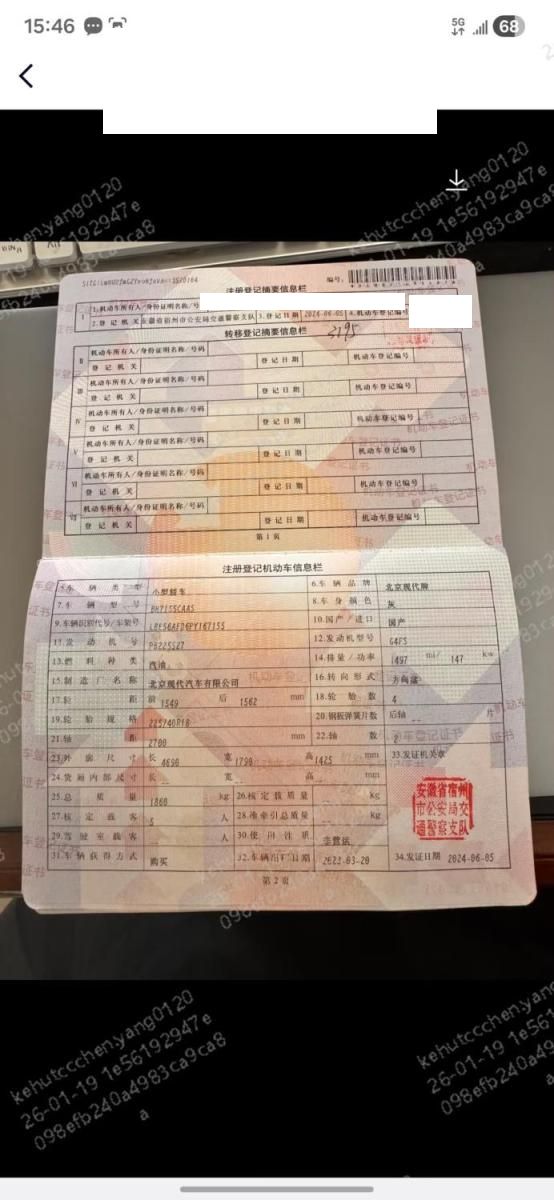 15:46
5G
68
kehutccchenyang0120
26-01-19 1e56192947e
098efb240a4983ca9ca8
a
编号:
注册登记摘要信息栏
I 1.机动车所有人/身份证明名称/号
2.登记机关 安徽省宿州市公安局交通警察支队 3.登记日期 2024-06-05 4.机动车登记编号
转移登记摘要信息栏
3195
II 机动车所有人/身份证明名称/号码
登记机关 登记日期 机动车登记编号
III 机动车所有人/身份证明名称/号码
登记机关 登记日期 机动车登记编号
IV 机动车所有人/身份证明名称/号码
登记机关 登记日期 机动车登记编号
V 机动车所有人/身份证明名称/号码
登记机关 登记日期 机动车登记编号
VI 机动车所有人/身份证明名称/号码
登记机关 登记日期 机动车登记编号
VII 机动车所有人/身份证明名称/号码
登记机关 登记日期 机动车登记编号
第1页
注册登记机动车信息栏
5.车辆类型 小型轿车 6.车辆品牌 北京现代牌
7.车辆型号 BH7155CAAS 8.车身颜色 灰
9.车辆识别代号/车架号 10.国产/进口 国产
11.发动机号 12.发动机型号 G4FS
13.燃料种类 汽油 14.排量/功率 1497 ml/ 147 kw
15.制造厂名称 北京现代汽车有限公司 16.转向形式 方向盘
17.轮距 前 1549 后 1562 mm 18.轮胎数 4
19.轮胎规格 225/40R18 20.钢板弹簧片数 后轴 -- 片
21.轴距 2700 mm 22.轴数 2
23.外廓尺寸 长 4690 宽 1790 高 1425 mm 33.发证机关章
24.货厢内部尺寸 长 -- 宽 -- 高 -- mm
25.总质量 1860 kg 26.核定载质量 -- kg
27.核定载客 5 人 28.准牵引总质量 -- kg
29.驾驶室载客 -- 人 30.使用性质 非营运
31.车辆获得方式 购买 32.车辆出厂日期 2023-03-20 34.发证日期 2024-06-05
安徽省宿州
市公安局交
通警察支队
第2页
kehutccchenyang0120
26-01-19 1e56192947e
098efb240a4983ca9ca8
a
kehutccchenyang0120
26-01-19 1e56192947e
098efb240a4983ca9ca8
a